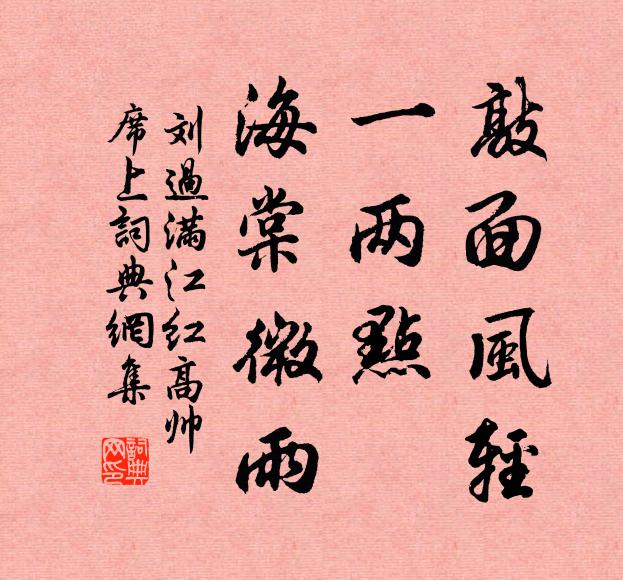 敲面風輕
一两點
海棠微雨
刘過满江红高帅
席上詞典網集
詞典网印